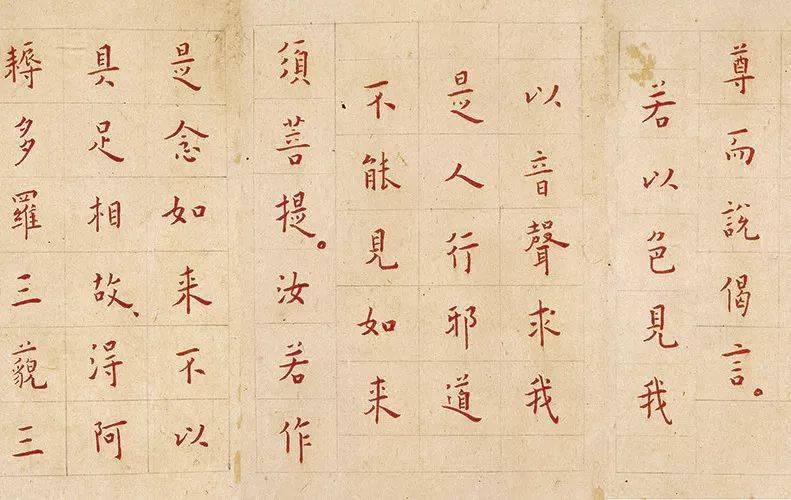 尊而說偈言。
若以色見我
以音聲求我
是人行邪道
不能見如来
須菩提。汝若作
是念如来不以
具足相故、得阿
耨多羅三藐三